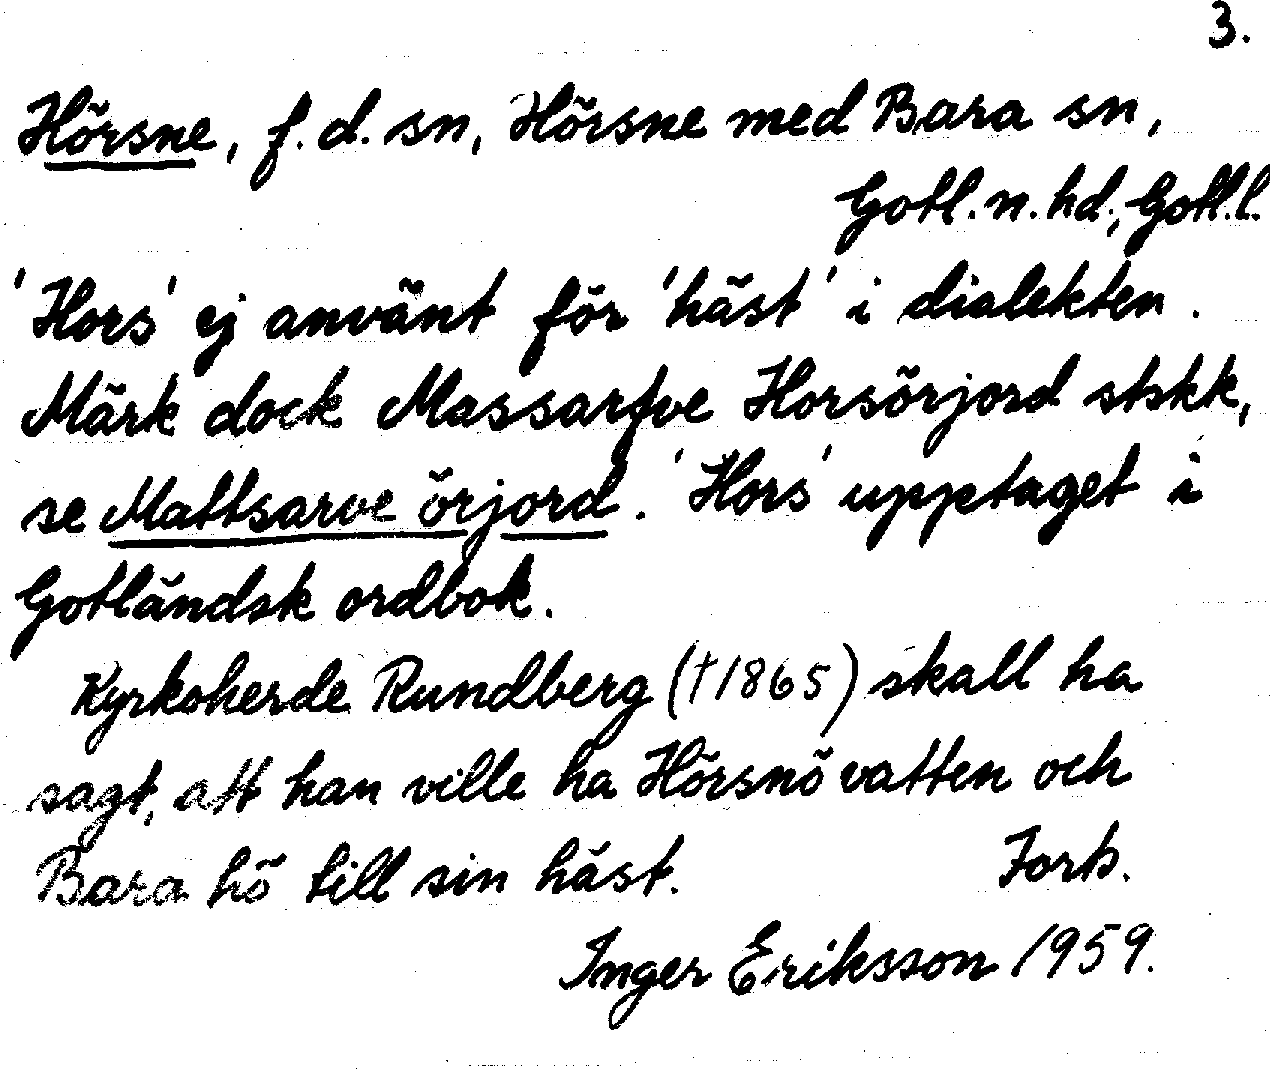 3.
Hörsne, f.d. sn, Hörsne med Bara sn,
Gotl.n.hd., Gotl.l.
'Hors' ej använt för 'häst' i dialekten.
Märk dock Massarfve Horsörjord stskk,
se Mattsarve örjord. 'Hors' upptaget i
Gotländsk ordbok.
Kyrkoherde Rundberg (†1865) skall ha
sagt, att han ville ha Hörsnö vatten och
Bara hö till sin häst. Forts.
Inger Eriksson 1959.